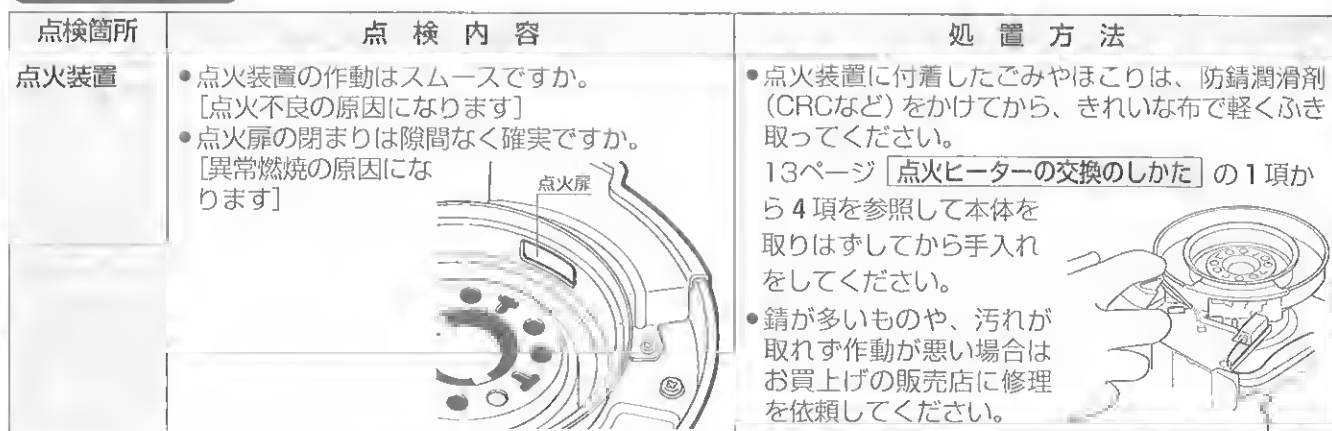 点検箇所
点検内容
処置方法
点火装置
●点火装置の作動はスムースですか。
[点火不良の原因になります]
●点火扉の閉まりは隙間なく確実ですか。
[異常燃焼の原因にな
ります]
点火扉
●点火装置に付着したごみやほこりは、防錆潤滑剤
(CRCなど)をかけてから、きれいな布で軽くふき
取ってください。
13ページ 点火ヒーターの交換のしかた の1項か
ら4項を参照して本体を
取りはずしてから手入れ
をしてください。
●錆が多いものや、汚れが
取れず作動が悪い場合は
お買上げの販売店に修理
を依頼してください。